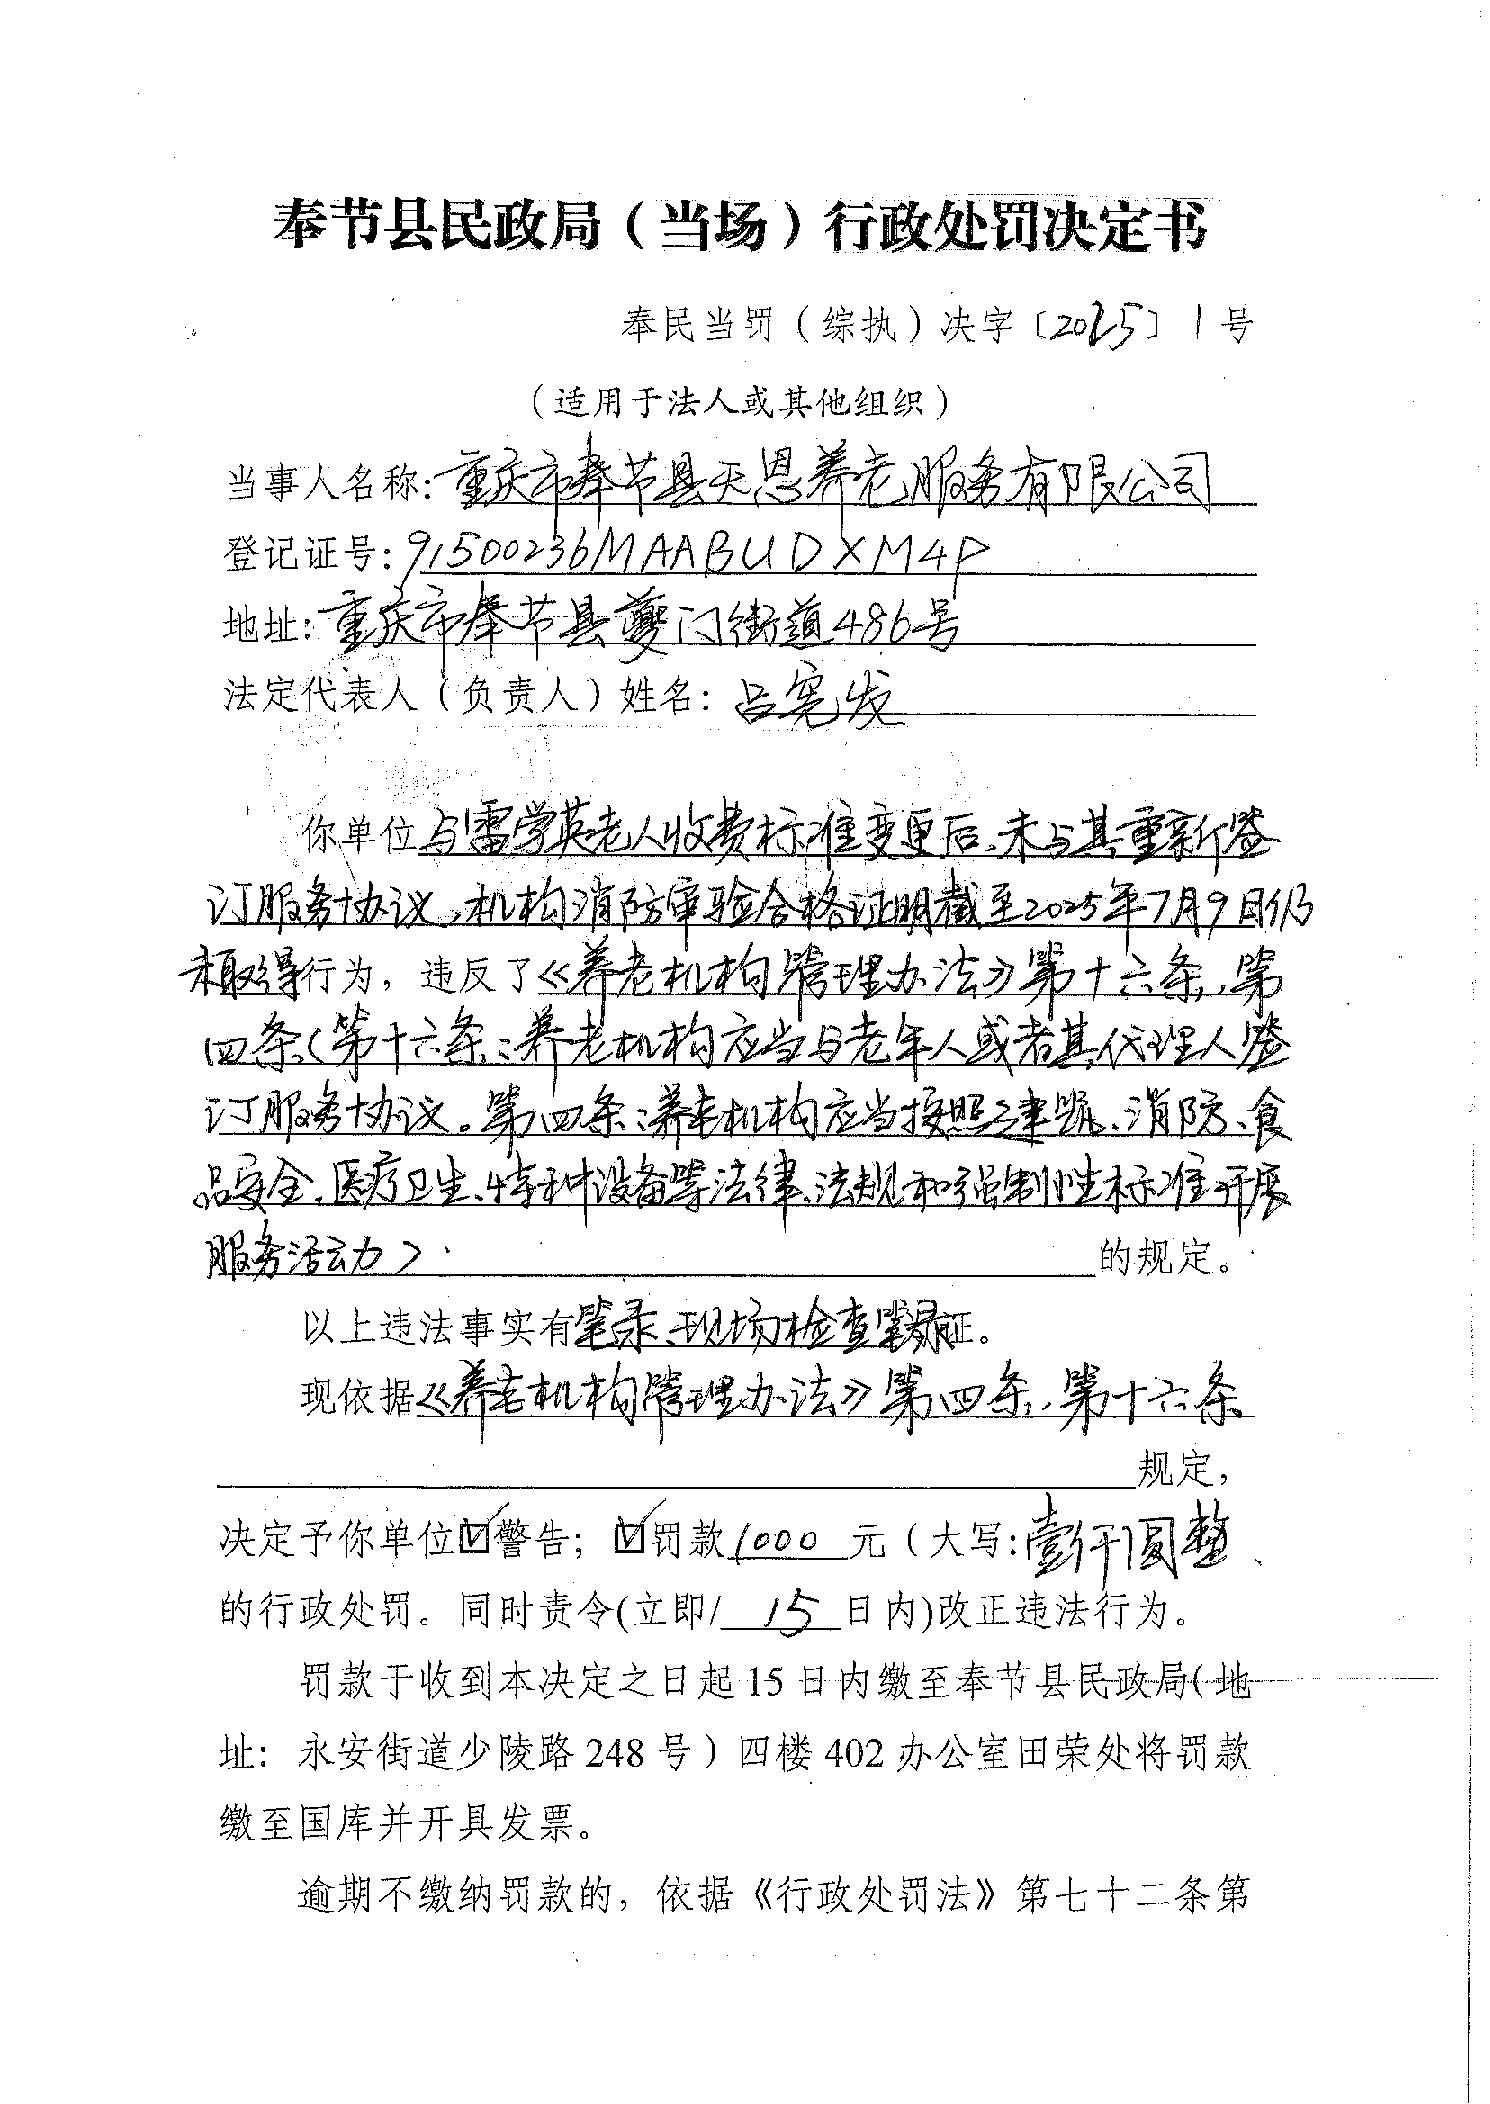 奉节县民政局（当场）行政处罚决定书
奉民当罚（综执）决字〔2025〕1号
（适用于法人或其他组织）
当事人名称：重庆市奉节县天恩养老服务有限公司
登记证号：91500236MAABUDXM4P
地址：重庆市奉节县夔门街道486号
法定代表人（负责人）姓名：吕宪发
你单位与雷学英老人收费标准变更后，未与其重新签
订服务协议，机构消防审验合格证明截至2025年7月9日仍
未取得行为，违反了《养老机构管理办法》第十六条、第
四条（第十六条：养老机构应当与老年人或者其代理人签
订服务协议。第四条：养老机构应当按照建筑、消防、食
品安全、医疗卫生、特种设备等法律、法规和强制性标准开展
服务活动）的规定。
以上违法事实有笔录、现场检查笔录为证。
现依据《养老机构管理办法》第四条、第十六条
规定，
决定予你单位☑警告；☑罚款1000元（大写：壹仟圆整
的行政处罚。同时责令(立即/15日内)改正违法行为。
罚款于收到本决定之日起15日内缴至奉节县民政局（地
址：永安街道少陵路248号）四楼402办公室田荣处将罚款
缴至国库并开具发票。
逾期不缴纳罚款的，依据《行政处罚法》第七十二条第